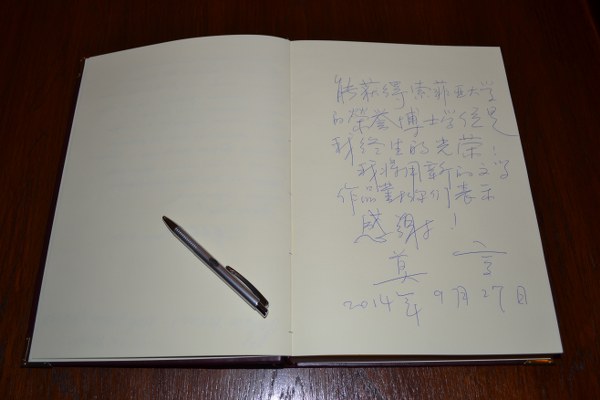 能获得索菲亚大学
的荣誉博士学位是
我终生的光荣！
我将用新的文学
作品对你们表示
感谢！
莫言
2014年9月27日